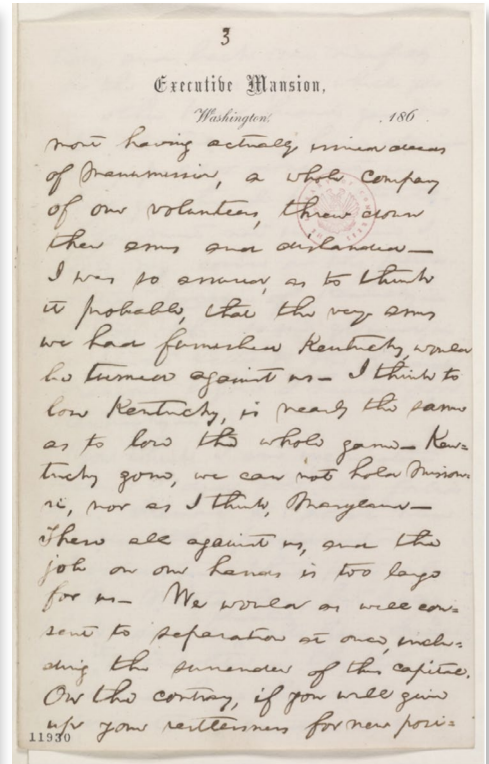 3
Executive Mansion,
Washington, 186 .
mont having actually issued deeds
of manumission, a whole company
of our volunteers, threw down
their arms and disbanded—
I was so assured, as to think
it probable, that the very arms
we had furnished Kentucky, would
be turned against us— I think to
lose Kentucky, is nearly the same
as to lose the whole game— Ken=
tucky gone, we can not hold Missou=
ri, nor as I think, Maryland—
These all against us, and the
job on our hands is too large
for us— We would as well con=
sent to separation at once, inclu=
ding the surrender of this capitol.
On the contrary, if you will give
up your restlessness for new posi=
11930